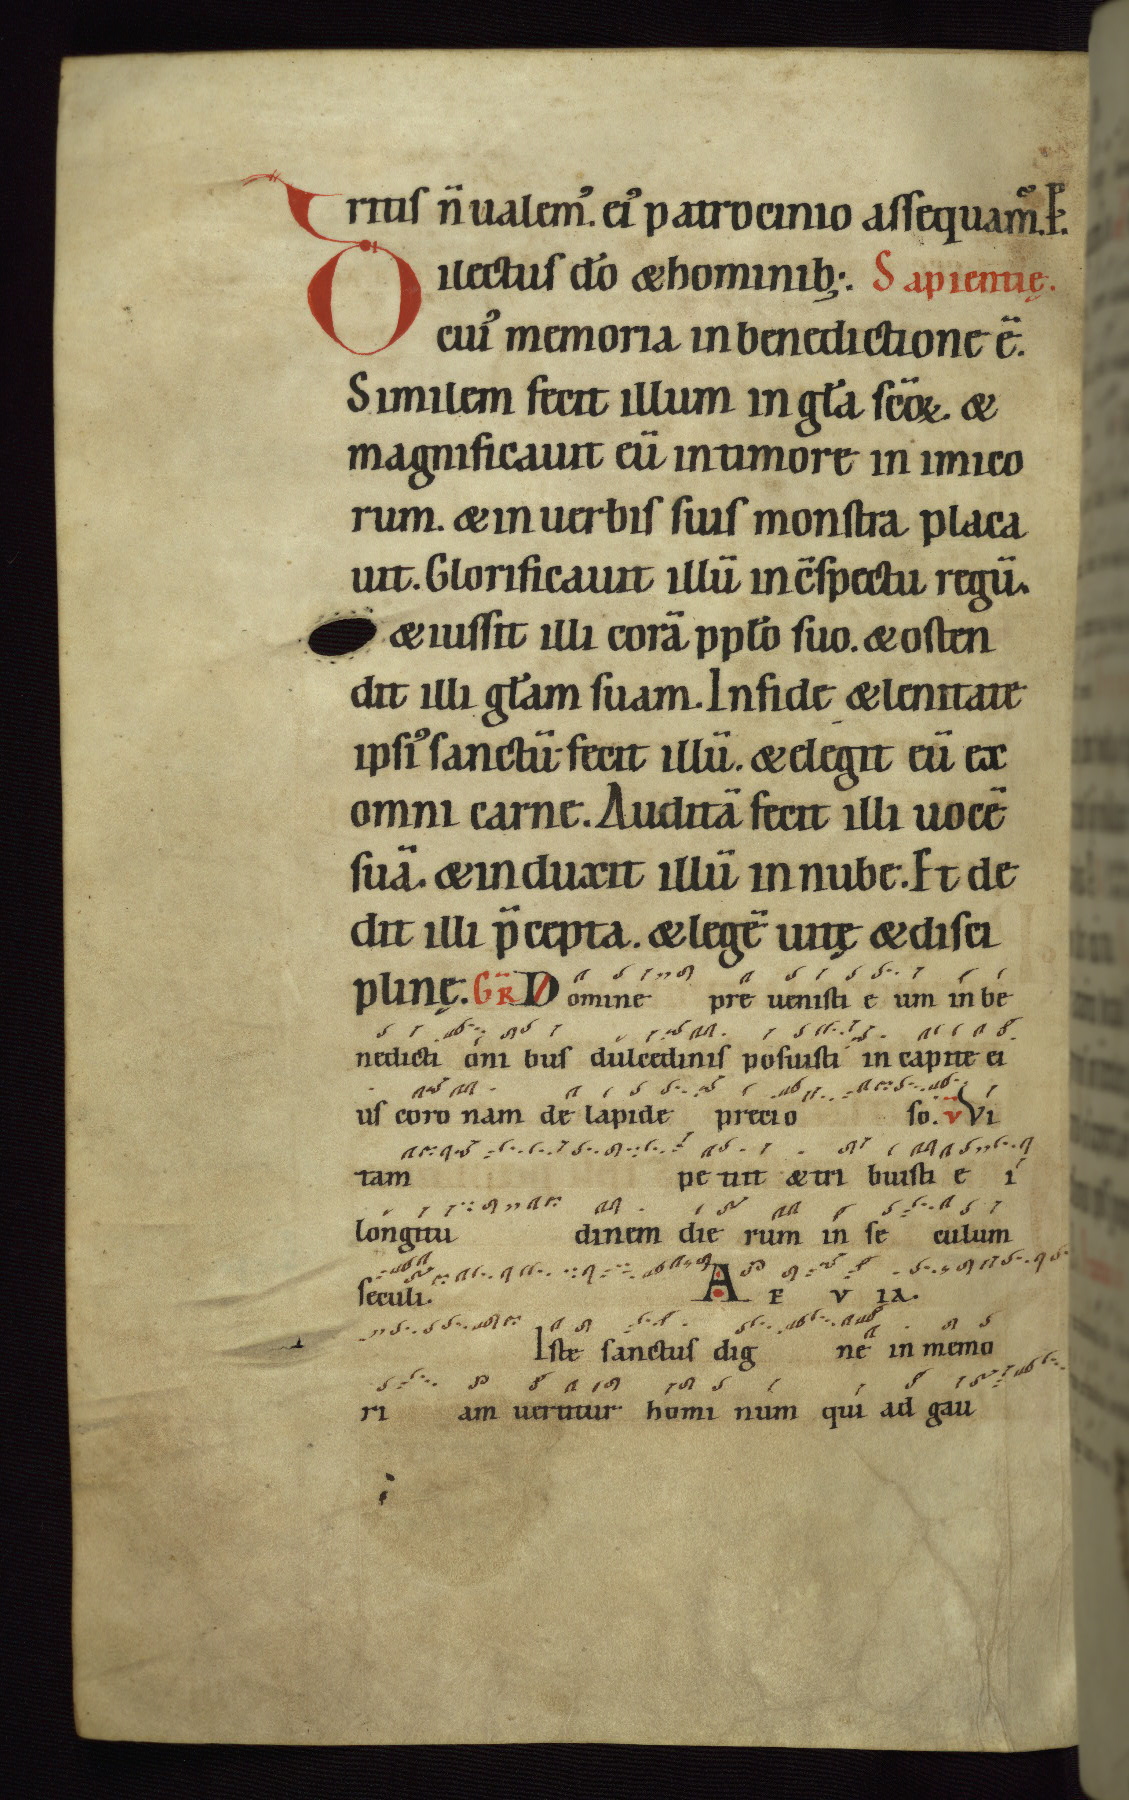 ritis n̄ ualem᷒. ei᷒ patrocinio assequam᷒. P.
Dilectus d̄o & hominib;. Sapientię.
cui᷒ memoria in benedictione ē.
Similem fecit illum in gła sc̄oꝝ. &
magnificauit eū in timore inimico
rum. & in uerbis suis monstra placa
uit. Glorificauit illū in c̄spectu regū.
& iussit illi corā ppło suo. & osten
dit illi głam suam. In fide & lenitate
ipsi᷒ sanctū fecit illū. & elegit eū ex
omni carne. Auditā fecit illi uocē
suā. & induxit illū in nube. Et de
dit illi p̄cepta. & legē uitę & disci
plinę. GR̄ Domine pre uenisti e um in be
nedicti oni bus dulcedinis posuisti in capite ei
us coro nam de lapide precio so. v̄ Vi
tam pe tiit & tri buisti e i
longitu dinem die rum in se culum
seculi. A E V IA.
Iste sanctus dig ne in memo
ri am uertitur homi num qui ad gau